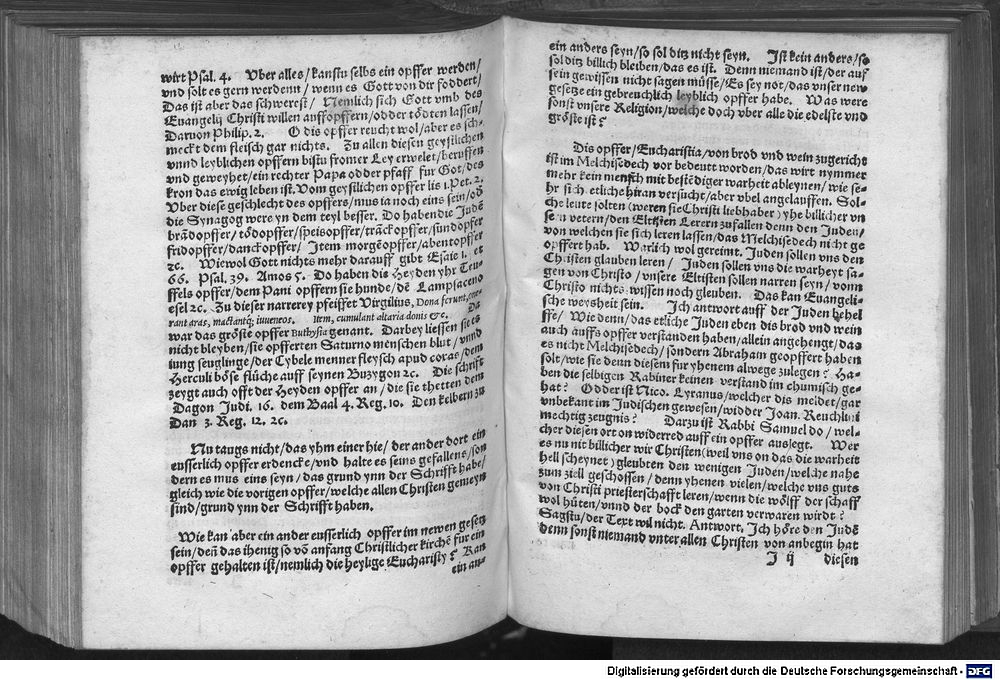 wirt Psal. 4. Vber alles/kanstu selbs ein opffer werden/
vnd solt es gern werdenn/ wenn es Gott von dir foddert/
Das ist aber das schwerest/ Nemlich sich Gott vmb des
Euangelij Christi willen auffopffern/odder tödten lassen/
Daruon Philip. 2. O dis opffer reucht wol/aber es sch-
meckt dem fleisch gar nichts. Zu allen diesen geystlichen
vnnd leyblichen opffern bistu fromer Ley erwelet/beruffen
vnd geweyhet/ein rechter Papa odder pfaff fur Got/des
kron das ewig leben ist. Vom geystlichen opffer lis 1. Pet. 2.
Vber diese geschlecht des opffers/mus ia noch eins sein/odd
die Synagog were yn dem teyl besser. Do haben die Judē
brādopffer/tōdopffer/speisopffer/trāckopffer/sündopffer
fridopffer/danckopffer/ Item morgēopffer/abentopffer
ꝛc. Wiewol Gott nichts mehr darauff gibt Esaie 1. et
66. Psal. 39. Amos 5. Do haben die Heyden yhr Teu-
ffels opffer/dem Pani opffern sie hunde/dē Lampsaceno
esel ꝛc. Zu dieser narrerey pfeiffet Virgilius, Dona ferunt,
rant aras, mactantq; iuuencos. Item, cumulant altaria donis &c. Da
war das gröste opffer Buthysia genant. Darbey liessen sie es
nicht bleyben/sie opfferten Saturno menschen blut/vnnd
iung seuglinge/der Cybele menner fleysch apud coras/dem
Herculi böse flüche auff seynen Buzygon ꝛc. Die schrifft
zeygt auch offt der Heyden opffer an/die sie thetten dem
Dagon Judi. 16. dem Baal 4. Reg. 10. Den kelbern zu
Dan 3. Reg. 12. ꝛc.
Nu taugs nicht/das yhm einer hie/der ander dort ein
eusserlich opffer erdencke/vnd halte es seins gefallens/son
dern es mus eins seyn/das grund ynn der Schrifft habe/
gleich wie die vorigen opffer/welche allen Christen gemeyn
sind/grund ynn der Schrifft haben.
Wie kan aber ein ander eusserlich opffer im newen gesetz
sein/deñ das ihenig so vō anfang Christlicher kirchē für ein
opffer gehalten ist/nemlich die heylige Eucharisty? Kan
ein an-
ein anders seyn/so sol ditz nicht seyn. Ist kein anders/so
sol ditz billich bleiben/das es ist. Denn niemand ist/der auf
sein gewissen nicht sagen müsse/Es sey not/das vnser new
gesetze ein gebreuchlich leyblich opffer habe. Was were
sonst vnsere Religion/welche doch vber alle die edelste vnd
gröste ist?
Dis opffer/Eucharistia/von brod vnd wein zugericht
ist im Melchisedech vor bedeutt worden/das wirt nymmer
mehr kein mensch mit bestēdiger warheit ableynen/wie se-
hr sich etliche hiran versucht/aber vbel angelauffen. Sol-
che leute solten (weren sie Christi liebhaber) yhe billicher vn
sern vetern/den Eltisten Lerern zufallen denn den Juden/
von welchen sie sich leren lassen/das Melchisedech nicht ge
opffert hab. Warlich wol gereimt. Juden sollen vns den
Christen glauben leren/ Juden sollen vns die warheyt sa-
gen von Christo/vnsere Eltisten sollen narren seyn/vonn
Christo nichts wissen noch gleuben. Das kan Euangeli-
sche weysheit sein. Ich antwort auff der Juden behel
ffe/ Wie denn/das etliche Juden eben dis brod vnd wein
auch auffs opffer verstanden haben/allein angehengt/das
es nicht Melchisedech/sondern Abraham geopffert haben
solt/wie sie denn diesem fur yhenem alwege zulegen? Ha-
ben die selbigen Rabiner keinen verstand im chumisch ge-
hat? Odder ist Nico. Lyranus/welcher dis meldet/gar
vnbekant im Judischen gewesen/widder Joan. Reuchlini
mechtig zeugnis? Darzu ist Rabbi Samuel do/wel-
cher diesen ort on widerred auff ein opffer ausлegt. Wer
es nu nit billicher wir Christen(weil vns on das die warheit
hell scheynet) gleubten den wenigen Juden/welche nahe
zum ziell geschossen/denn yhenen vielen/welche vns guts
von Christi priesterschafft leren/wenn die wölff der schaff
wol hüten/vnnd der bock den garten verwaren wirdt?
Sagstu/der Text wil nicht. Antwort. Ich höre den Judē
denn sonst niemand vnter allen Christen von anbegin hat
J ij diesen
Digitalisierung gefördert durch die Deutsche Forschungsgemeinschaft - DFG